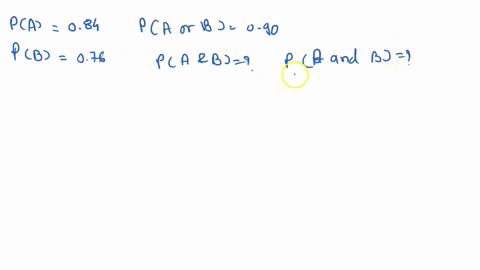 P(A) = 0.84 P(A or B) = 0.90
P(B) = 0.76 P(A & B) = ? P(A and B) = ?